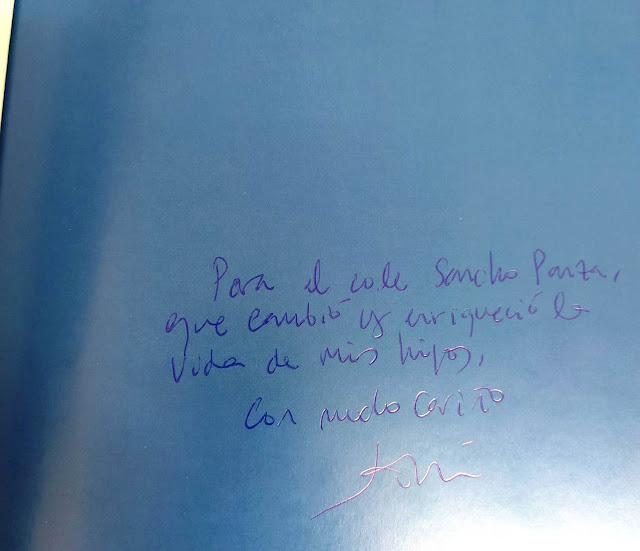 Para el cole Sancho Panza,
que cambió y enriqueció la
vida de mis hijos,
Con mucho cariño